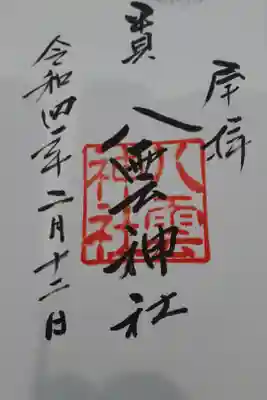 奉拝
貫
八雲神社
八雲神社
令和四年二月十二日